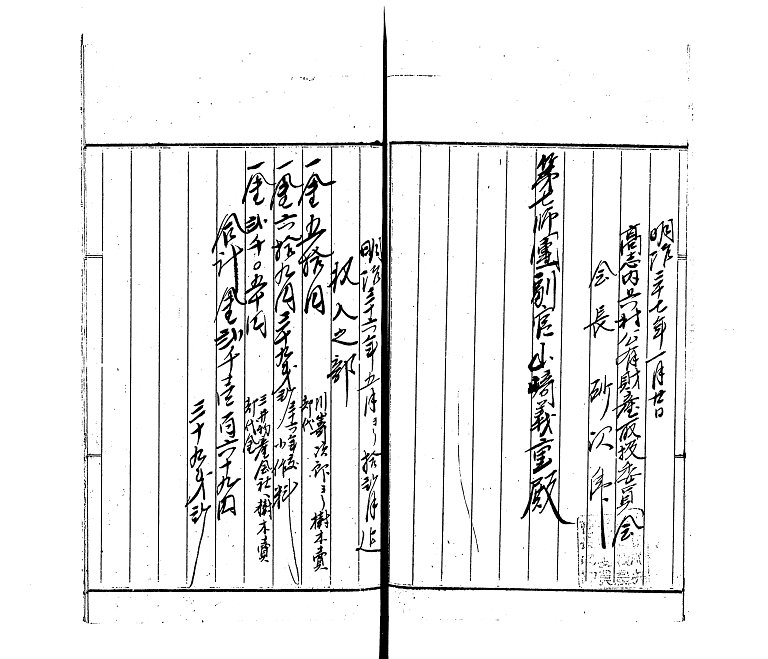 明治三十七年一月廿日
高志内共村公有財産取扱委員会
会長 砂次郎
第七師團副官山﨑義重殿
明治三十六年五月ヨリ拾弐月迄
収入之部
一金五拾円 川嵜次郎ヨリ樹木賣却代
一金六拾九円三十九戋弐リ 三十六年度小作料
一金弐千〇五十円 三井物産会社、樹木賣却代金
合計金弐千壱百六十九円
三十九戋弐リ